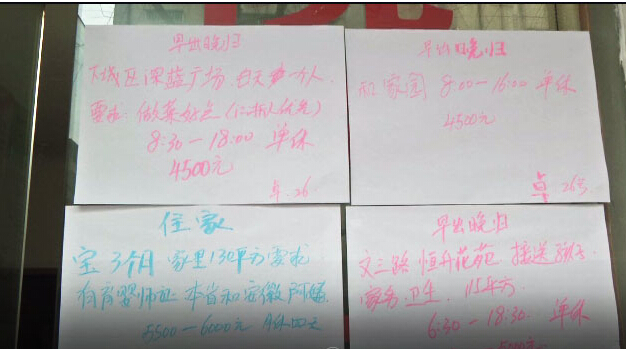 早出晚归
下城区深蓝广场 白天 一个人
要求: 做菜好
8:30一18:00 单休
4500元
卓 26
早出晚归
家园 8:00一16:00 单休
4500元
卓 26号
住家
宝3个月 家里130平方 要求
有育婴师证 本省和安徽阿姨
5500一6000元 月休四天
早出晚归
文三路 恒升花苑 接送孩子
家务卫生 115平方
6:30一18:30 单休